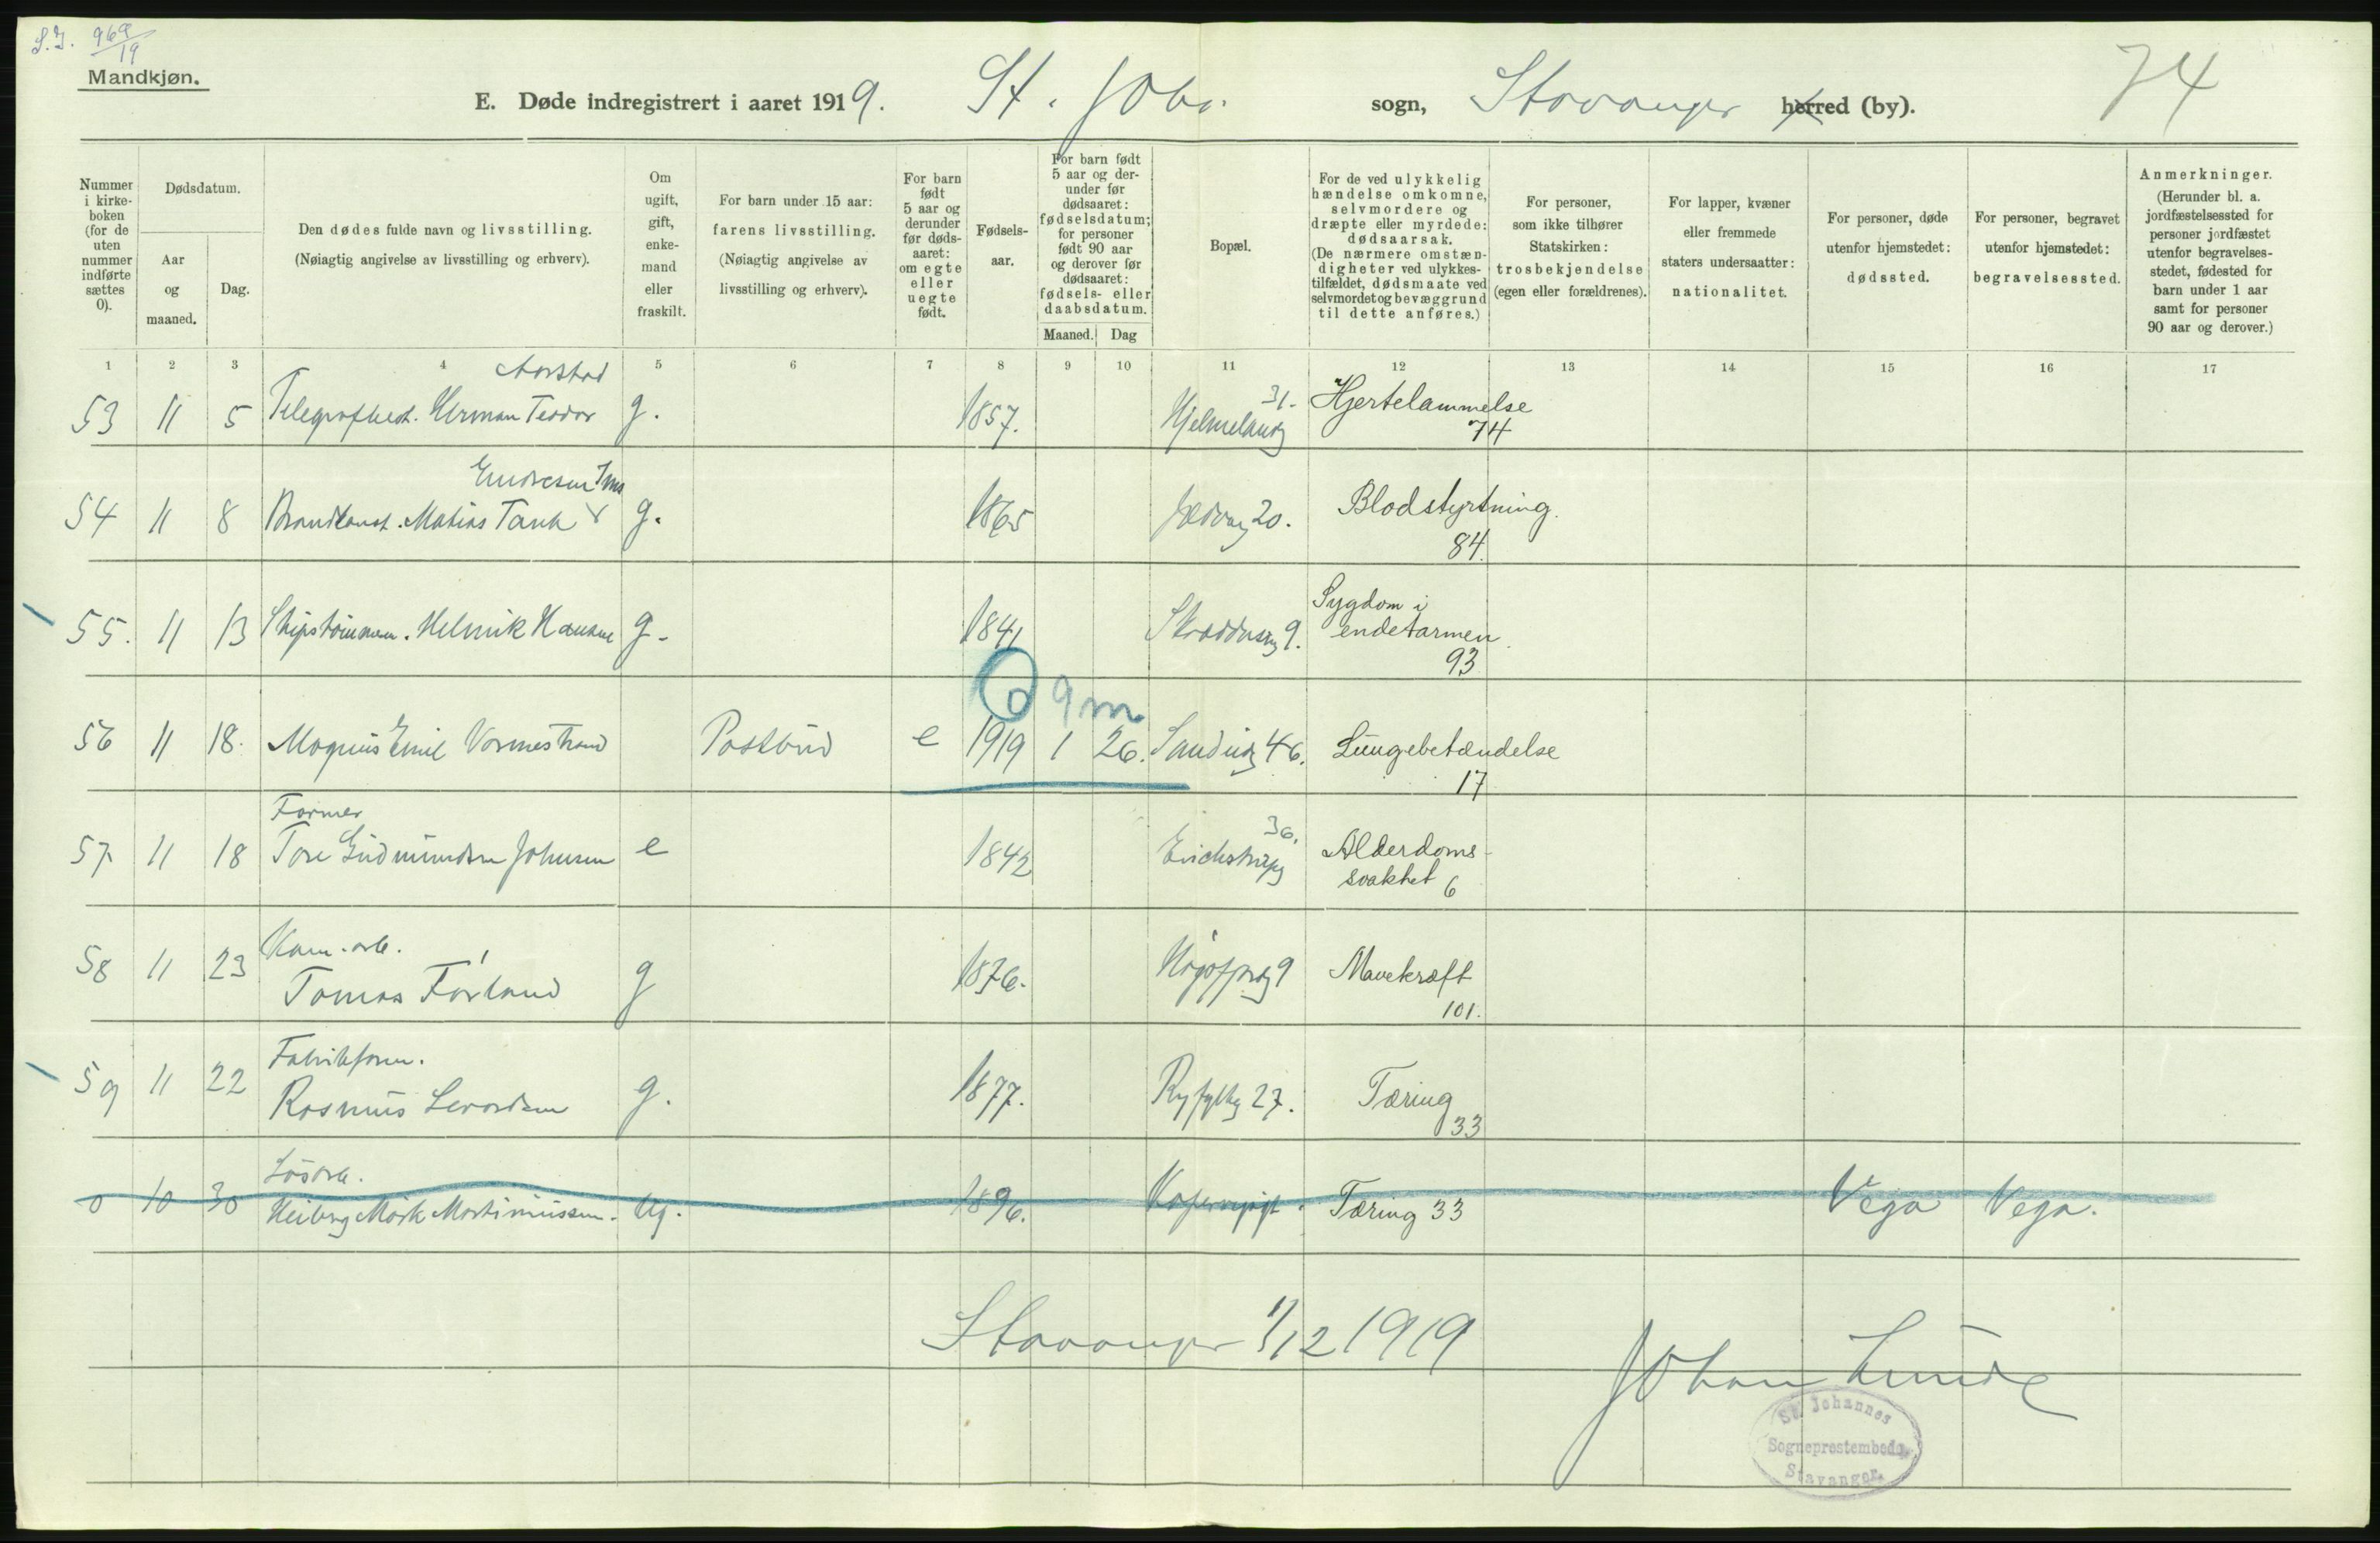 S.J. 969/19
Mandkjøn.
E. Døde indregistrert i aaret 1919. St. Johs. sogn, Stavanger herred (by).
74
Nummer i kirkeboken (for de uten nummer indførte sættes 0).
Dødsdatum.
Aar og maaned.
Dag.
Den dødes fulde navn og livsstilling.
(Nøiagtig angivelse av livsstilling og erhverv).
Om ugift, gift, enkemand eller fraskilt.
For barn under 15 aar: farens livsstilling.
(Nøiagtig angivelse av livsstilling og erhverv).
For barn født 5 aar og derunder før dødsaaret: om egte eller uegte født.
Fødselsaar.
For barn født 5 aar og derunder før dødsaaret: fødselsdatum; for personer født 90 aar og derover før dødsaaret: fødsels- eller daabsdatum.
Maaned. Dag
Bopæl.
For de ved ulykkelig hændelse omkomne, selvmordere og dræpte eller myrdede: dødsaarsak.
(De nærmere omstændigheter ved ulykkestilfældet, dødsmaate ved selvmordet og bevæggrund til dette anføres.)
For personer, som ikke tilhører Statskirken: trosbekjendelse (egen eller forældrenes).
For lapper, kvæner eller fremmede staters undersaatter: nationalitet.
For personer, døde utenfor hjemstedet: dødssted.
For personer, begravet utenfor hjemstedet: begravelsessted.
Anmerkninger.
(Herunder bl. a. jordfæstelsessted for personer jordfæstet utenfor begravelsesstedet, fødested for barn under 1 aar samt for personer 90 aar og derover.)
1 2 3 4 5 6 7 8 9 10 11 12 13 14 15 16 17
Aarstad
53 11 5 Telegrafbest. Herman Teodor g. 1857. Hjelmelandg 31. Hjertelammelse
74
Endresen Ims
54 11 8 Brandkonst. Matias Tank g. 1865 Jædvg 20. Blodstyrtning.
84.
55. 11 13 Skipstømmerm. Helmik Hansen g. 1841 9. Sygdom i
endetarmen
93
0 9 m
56 11 18. Magnus Emil Vormestrand Postbud e 1919 1 26. Sandvig 46. Lungebetændelse
17
Former
57 11 18 Tore Gudmundsen Johnsen e 1842 Erichstrupg 36. Alderdoms-
svakhet 6
Kom. arb.
58 11 23 Tomas Førland g 1876. 9 Mavekræft
101.
Fabrikform.
59 11 22 Rasmus Levordsen g. 1877. Ryfylkg 27. Tæring
33
Løsarb.
0 10 30 Heiberg Mørk Martinussen. Ug. 1896. Tæring 33 Vega Vega.
Stavanger 1/12 1919
Johan Lunde
St. Johannes
Sogneprestembede
Stavanger.